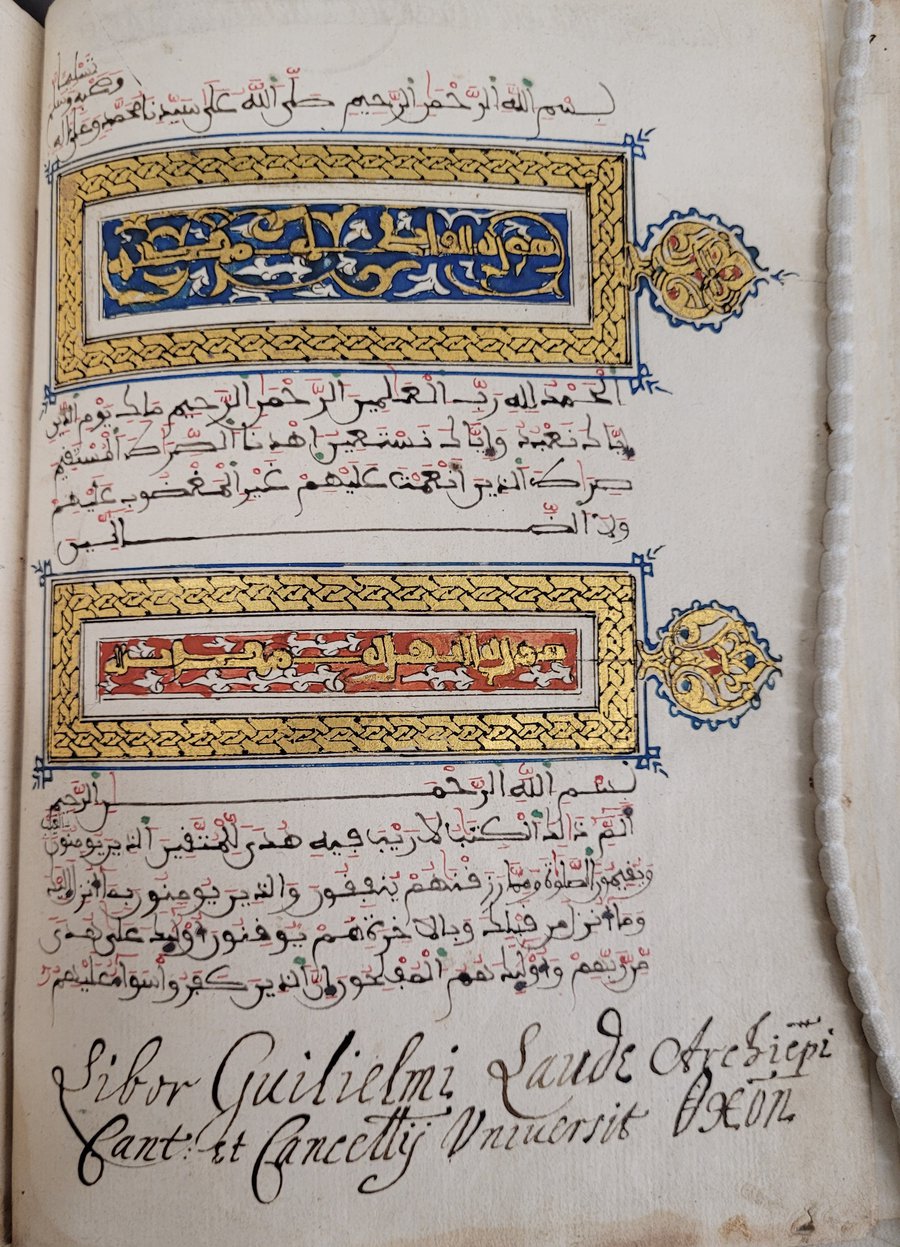 بسم الله الرحمن الرحيم صلى الله على سيدنا محمد وعلى اله
وصحبه وسلم
تسليما
سورة
الحمد لله رب العلمين الرحمن الرحيم ملك يوم الدين
إياك نعبد وإياك نستعين اهدنا الصراط المستقيم
صراط الذين أنعمت عليهم غير المغضوب عليهم
ولا الضالين
سورة البقرة
بسم الله الرحمن الرحيم
الم ذلك الكتب لا ريب فيه هدى للمتقين الذين يومنون بالغيب
ويقيمون الصلوة ومما رزقنهم ينفقون والذين يومنون بما أنزل إليك
وما أنزل من قبلك وبالاخرة هم يوقنون أوليك على هدى
من ربهم وأوليك هم المفلحون إن الذين كفروا سواء عليهم
Libor Guilielmi Laude Archiepi
Cant: et Cancellij Vniuersit Oxon.